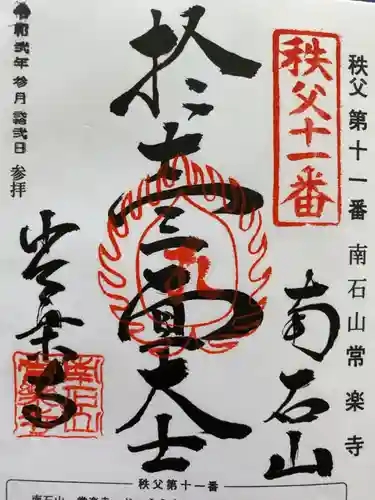 秩父第十一番 南石山常楽寺
秩父十一番
南石山
拾壹面大士
常楽寺
令和弐年参月 弐日 参拝
秩父第十一番